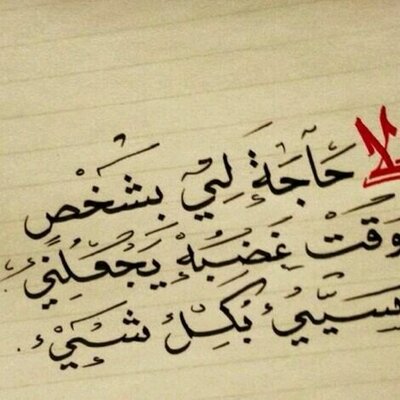 لا حَآجَةَ لِيْ بشَخْص
وَقتْ غِضَبِهْ يَجْعَلِنيْ
سيّئ بكل شيْء